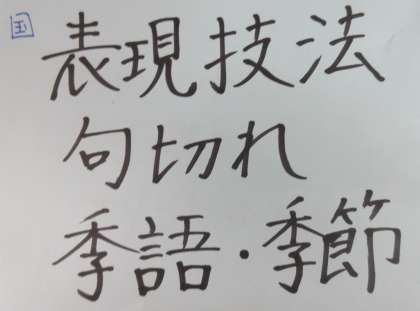 国
表現技法
句切れ
季語・季節